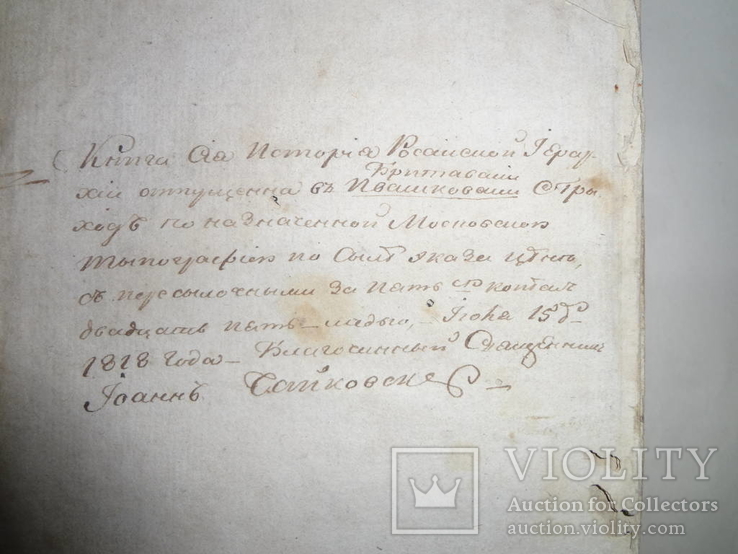 Книга Сія Исторія Росийской Іерар-
хіи отпущенна въ
ходъ по назначенной Московской
Типографіей по силѣ указа цѣнѣ,
съ пересылочными за пять копѣек
двадцать пять медью, Іюня 15 д
1818 года Благочинный Священник
Іоаннъ
VIOLITY
Auction for Collectors
auction.violity.com